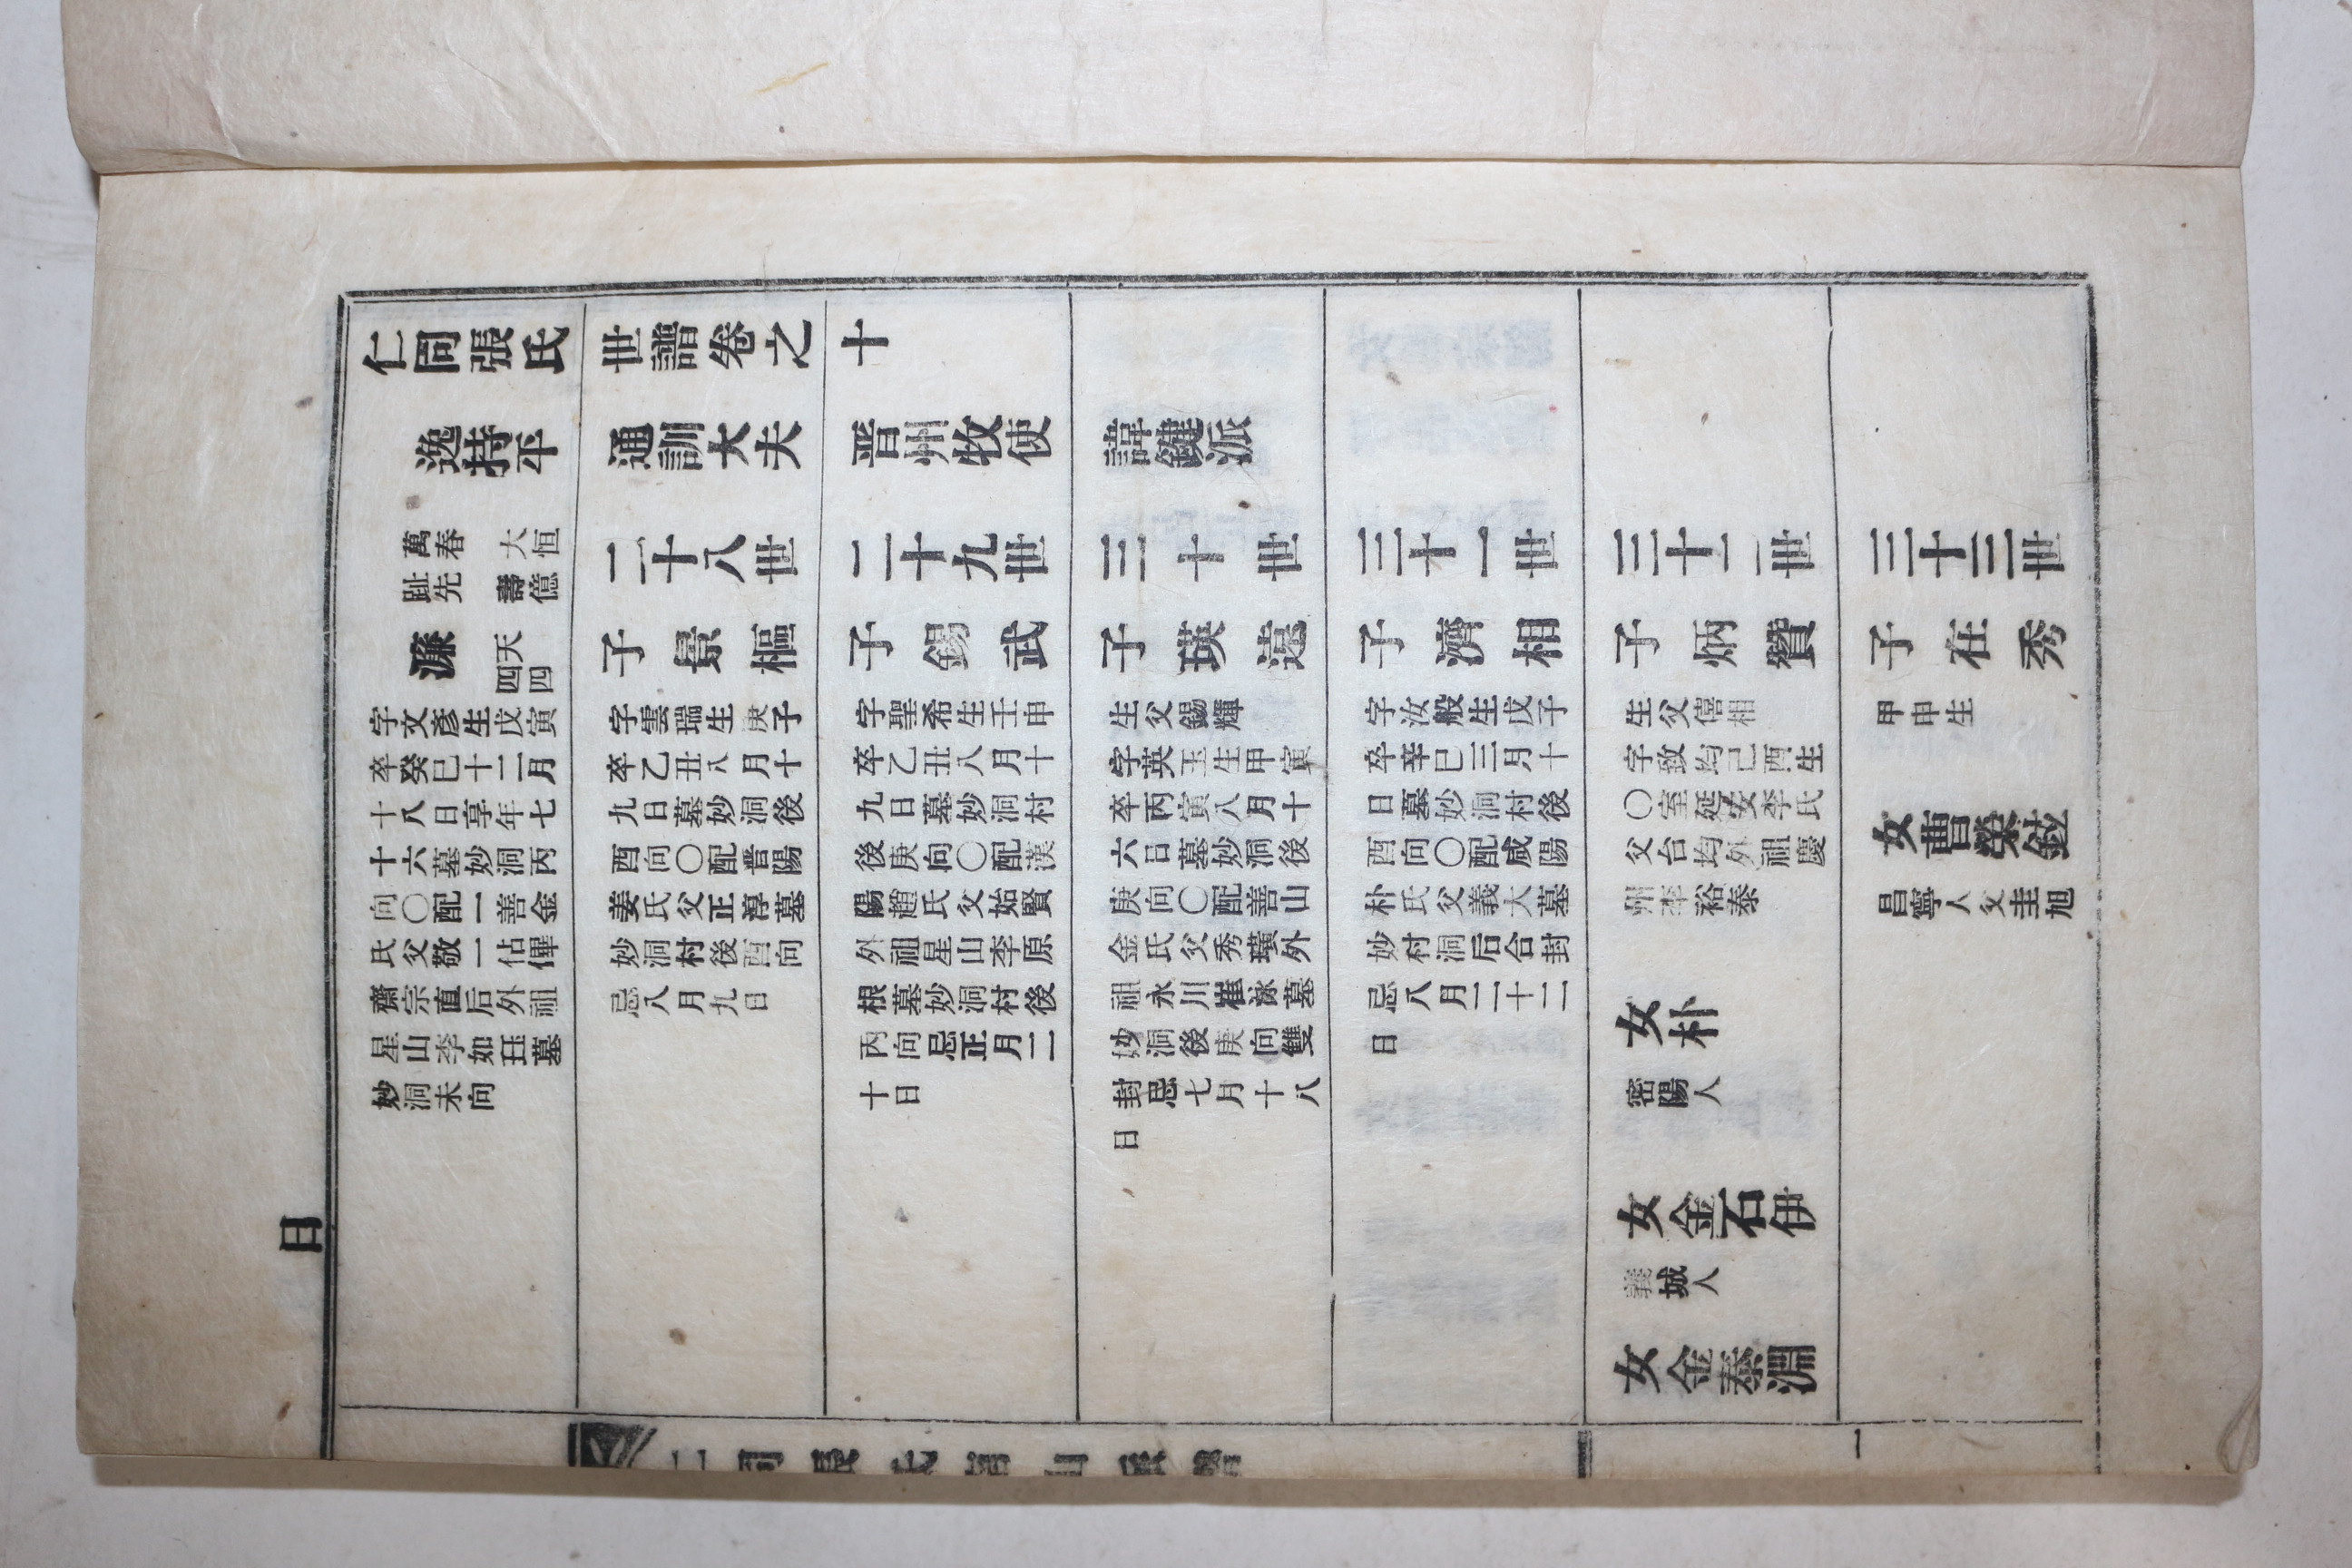 仁同張氏世譜卷之十
逸持平通訓大夫晋州牧使諱鍵派
萬春 大恒
趾先 壽億
濂
天四
四
字文彥生戊寅
卒癸巳十二月
十八日享年七
十六墓妙洞丙
向〇配一善金
氏父敬一佔俾
齋宗直后外祖
星山李如墓
妙洞未向
二十八世
子景樞
字雲瑞生庚子
卒乙丑八月十
九日墓妙洞後
酉向〇配晋陽
姜氏父正淳墓
妙洞村後酉向
忌八月九日
二十九世
子錫武
字聖希生壬申
卒乙丑八月十
九日墓妙洞村
後庚向〇配漢
陽趙氏父始賢
外祖星山李原
根墓妙洞村後
丙向忌正月二
十日
三十世
子瑛遠
生父錫輝
字英玉生甲寅
卒丙寅八月十
六日墓妙洞後
庚向〇配善山
金氏父秀璜外
祖永川崔泳墓
妙洞後庚向雙
封忌七月十八
日
三十一世
子濟相
字汝般生戊子
卒辛巳三月十
日墓妙洞村後
酉向〇配咸陽
朴氏父義大墓
妙村洞后合封
忌八月二十二
日
三十二世
子炳贊
生父僖相
字致均己酉生
〇室延安李氏
父台均外祖慶
州李裕泰
女朴
密陽人
女金石伊
義城人
女金泰淵
三十三世
子在秀
甲申生
女曹榮鉉
昌寧人父圭旭
日